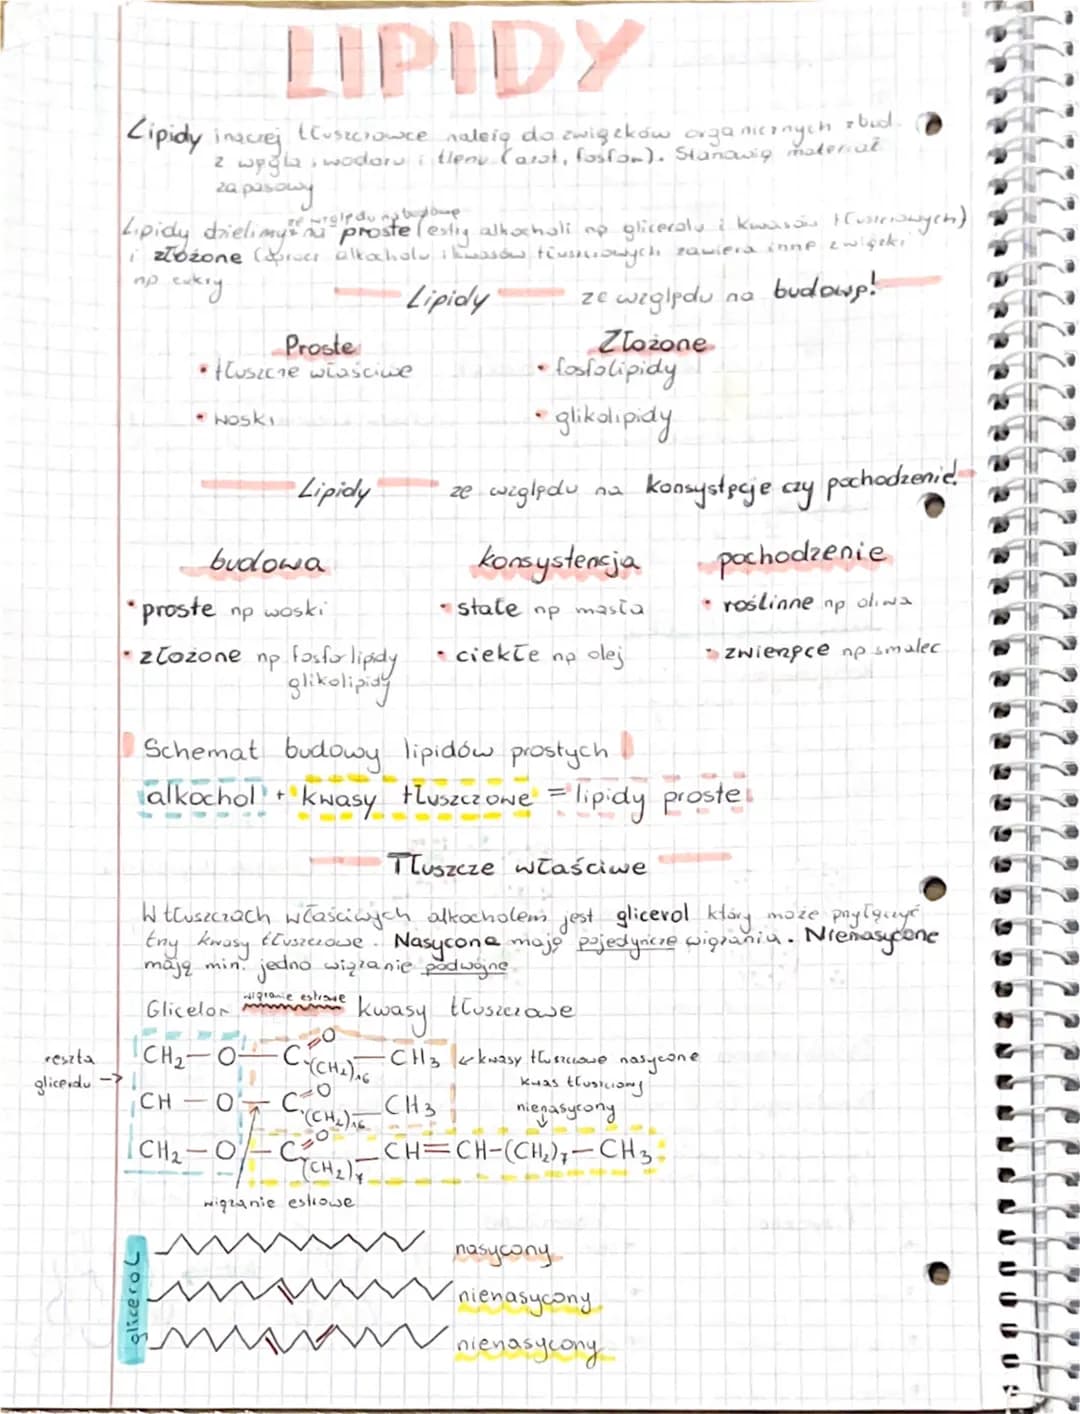 LIPIDY
Lipidy inaczej tłuszczowce należą do związków organicznych zbud.
z węgla, wodoru i tlenu (azot, fosfor). Stanowią materiał
zapasowy
ze względu na budowę
Lipidy dzielimy na proste (estry alkocholi np glicerolu i kwasów tłuszczowych)
i złożone (oprócz alkocholu i kwasów tłuszczowych zawiera inne związki
np cukry
Lipidy ze względu na budowę!
Proste Złożone
• tłuszcze właściwe • fosfolipidy
• woski • glikolipidy
Lipidy ze względu na konsystęcje czy pochodzenie!
budowa konsystencja pochodzenie
• proste np woski • stałe np masła • roślinne np oliwa
• złożone np fosforlipidy • ciekłe np olej • zwierzęce np smalec
glikolipidy
Schemat budowy lipidów prostych
alkochol + kwasy tłuszczowe = lipidy proste
Tłuszcze właściwe
W tłuszczach właściwych alkocholem jest glicerol który może przyłączyć
trzy kwasy tłuszczowe. Nasycone mają pojedyncze wiązania. Nienasycone
mają min. jedno wiązanie podwójne
Glicelor wiązanie estrowe kwasy tłuszczowe
reszta glicerolu →
CH₂ — O — C =O (CH₂)₁₆ — CH₃ ← kwasy tłuszczowe nasycone
kwas tłuszczowy
nienasycony
CH — O — C =O (CH₂)₁₆ — CH₃
CH₂ — O — C =O (CH₂)₇ — CH = CH - (CH₂)₇ — CH₃
wiązanie estrowe
glicerol
nasycony
nienasycony
nienasycony